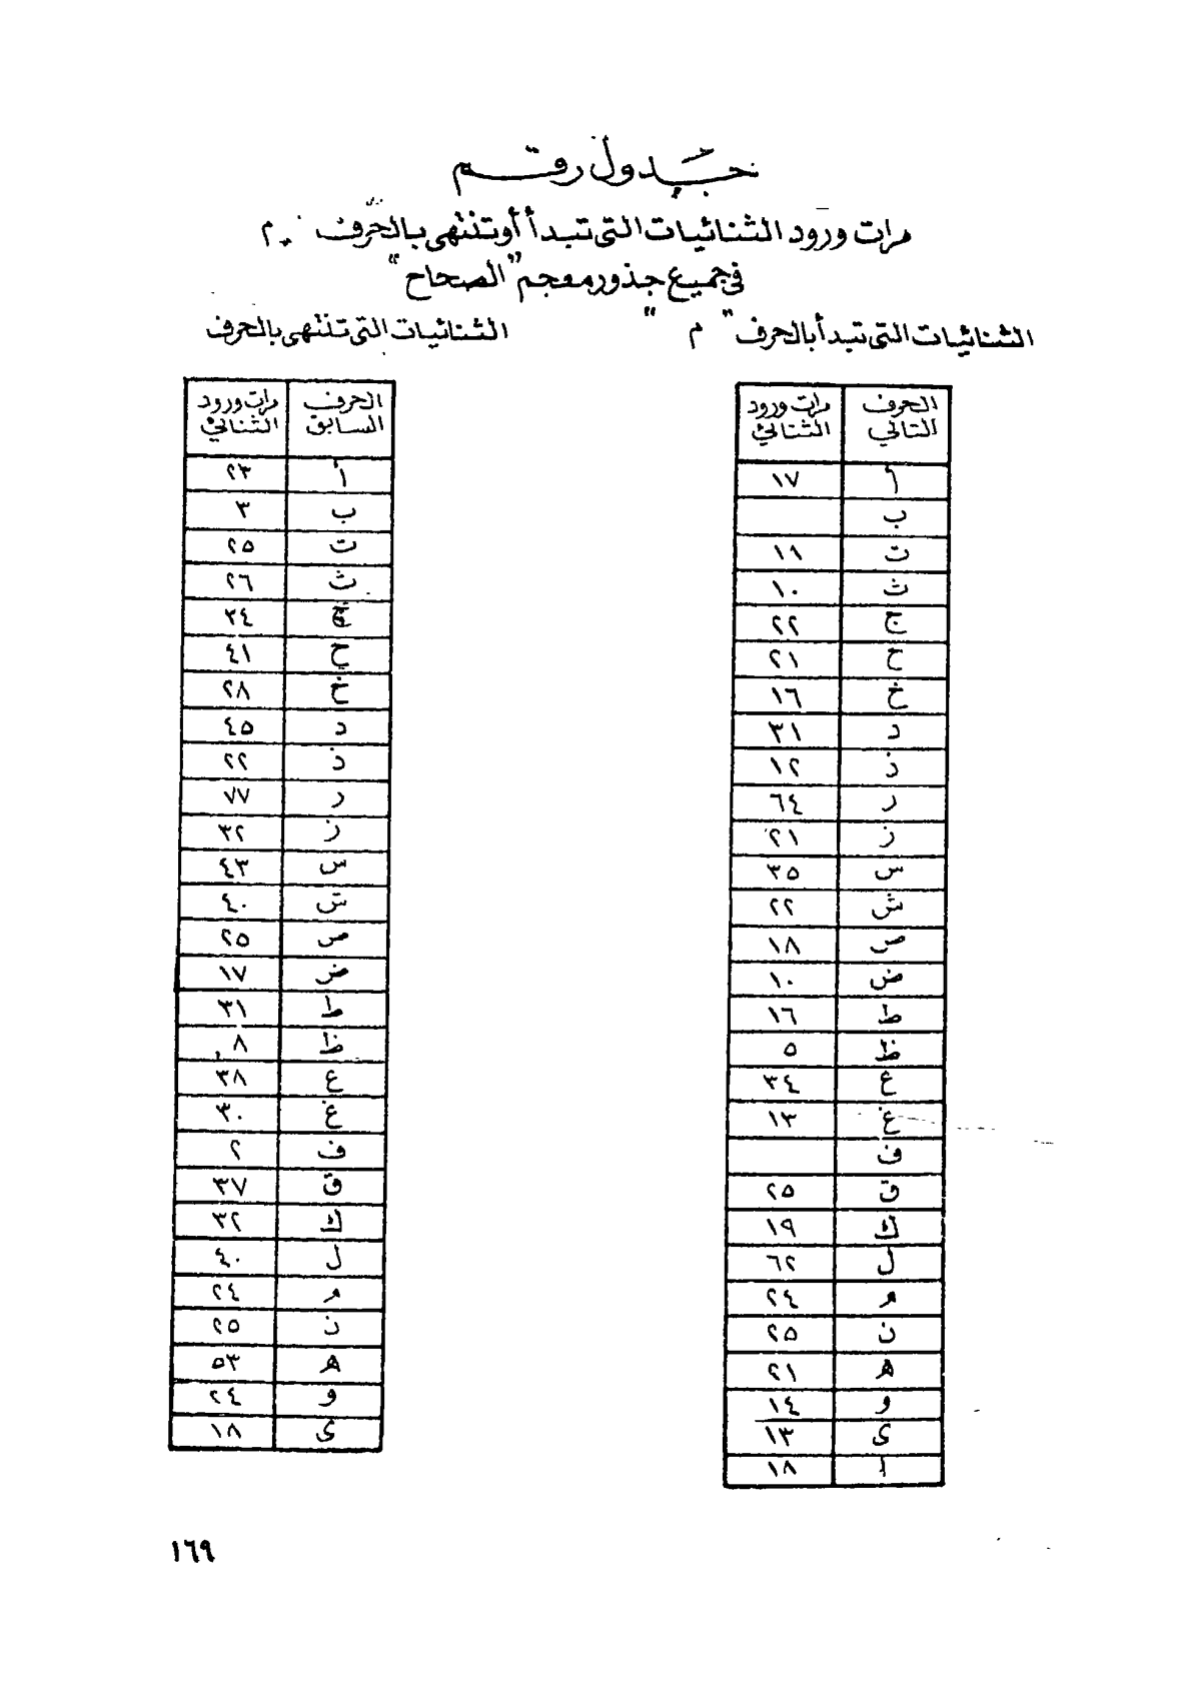 جدول رقم
مرات ورود الثنائيات التى تبدأ أو تنتهى بالحرف م
فى جميع جذور معجم "الصحاح"
الثنائيات التى تبدأ بالحرف " م "
الحرف التالي مرات ورود الثنائي
أ ١٧
ب
ت ١١
ث ١٠
ج ٢٢
ح ٢١
خ ١٦
د ٣١
ذ ١٢
ر ٦٤
ز ٢١
س ٣٥
ش ٢٢
ص ١٨
ض ١٠
ط ١٦
ظ ٥
ع ٣٤
غ ١٣
ف
ق ٢٥
ك ١٩
ل ٦٢
م ٢٤
ن ٢٥
ه ٢١
و ١٤
ى ١٣
ا ١٨
الثنائيات التى تنتهى بالحرف
الحرف السابق مرات ورود الثنائي
أ ٢٣
ب ٣
ت ٢٥
ث ٢٦
ج ٣٤
ح ٤١
خ ٢٨
د ٤٥
ذ ٢٢
ر ٧٧
ز ٣٢
س ٤٣
ش ٤٠
ص ٢٥
ض ١٧
ط ٣١
ظ ٨
ع ٣٨
غ ٣٠
ف ٢
ق ٣٧
ك ٣٢
ل ٤٠
م ٢٤
ن ٢٥
ه ٥٣
و ٢٤
ى ١٨
١٦٩